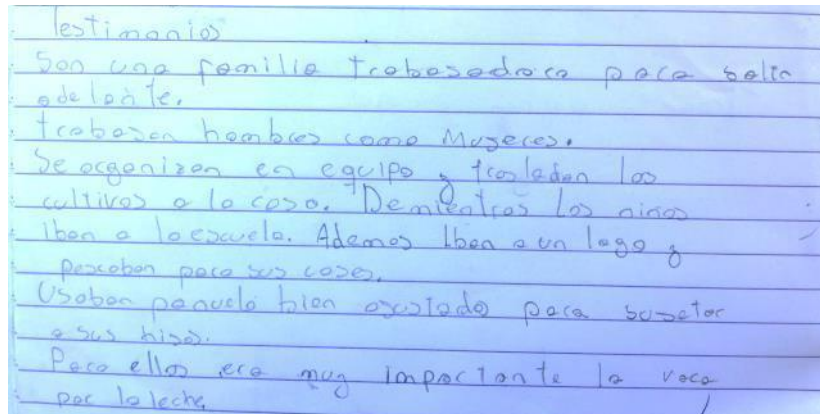 Testimonios
Son una familia trabasadora para salir
adelante.
trabasan hombres como Museres.
Se organizan en equipo y trasladan los
cultivos a la casa. Demientras los niños
iban a la escuela. Ademas Iban a un lago y
pescaban para sus casas.
Usaban panuelo bien asustado para susetar
a sus hisos.
Para ellos era muy importante la vaca
por la leche.